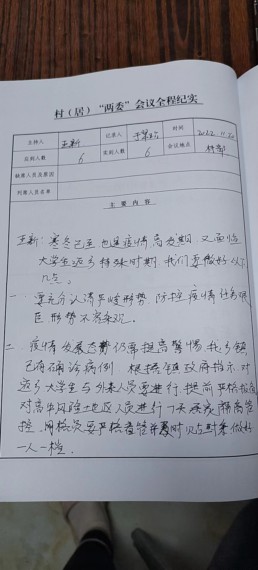 村（居）“两委”会议全程纪实
主持人 王新 记录人 时间 2022.11.20
应到人数 6 实到人数 6 会议地点 村部
缺席人员及原因
列席人员名单
主要内容
王新：寒冬已至也是疫情高发期 又面临
大学生返乡特殊时期 我们要做好以下
几点。
一 要充分认清严峻形势，防控疫情任务艰
巨 形势不容乐观。
二 疫情发展态势仍需提高警惕 我乡镇
已有确诊病例 根据镇政府指示 对
返乡大学生与外来人员要进行 提前严格报备
对高中风险地区人员进行7天居家隔离管
控，网格员要严格看管并及时 对 做好
一人一档。